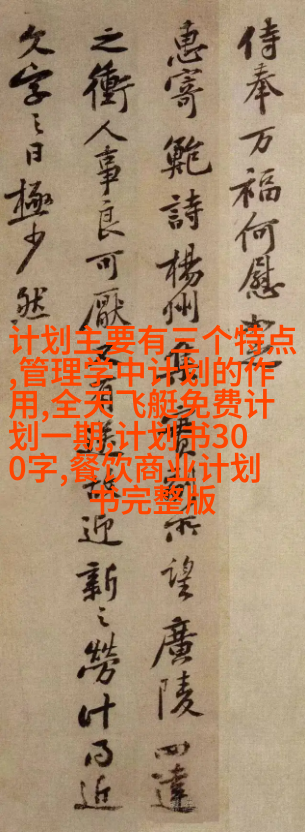 侍奉万福何慰
惠寄鲍詩楊州
望廣陵四達
之衝人事良可厭
迎新之勞計
近
欠字之日極少然
计划主要有三个特点
,管理学中计划的作
用,全天飞艇免费计
划一期,计划书30
0字,餐饮商业计划
书完整版